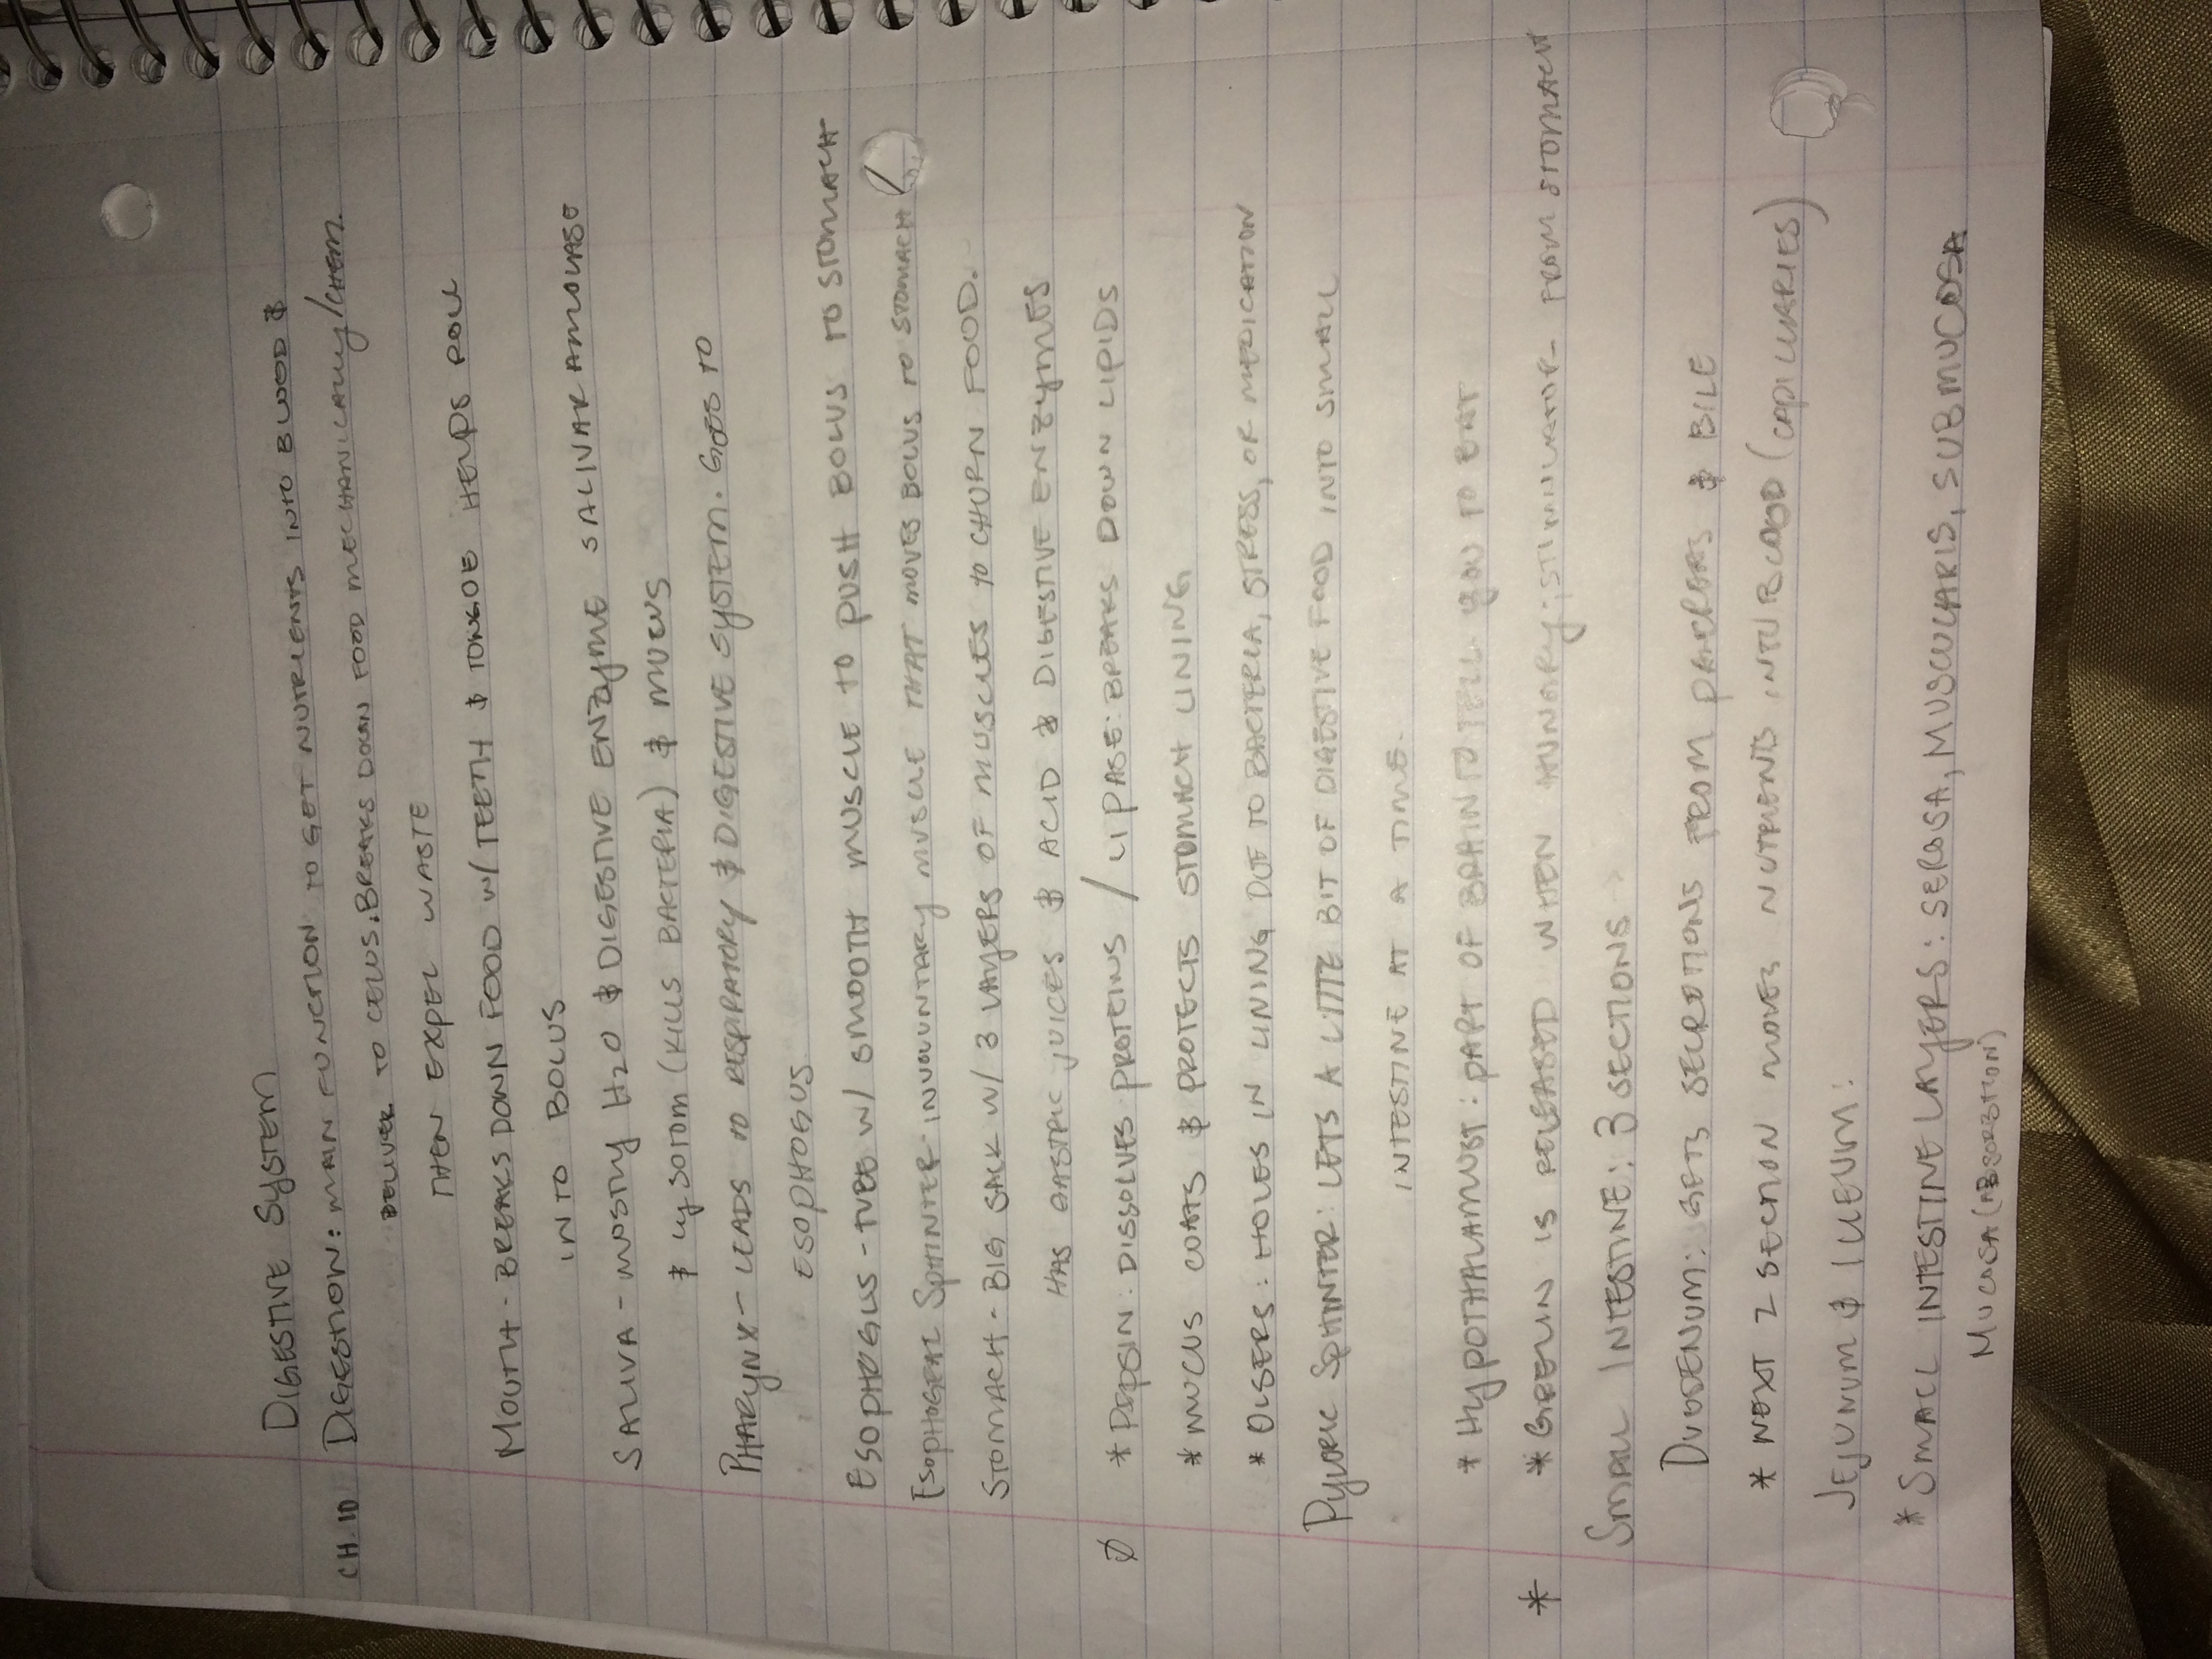 DIGESTIVE SYSTEM
CH. 10 DIGESTION: MAIN FUNCTION TO GET NUTRIENTS INTO BLOOD &
DELIVER TO CELLS. BREAKS DOWN FOOD MECHANICALLY/CHEM.
THEN EXPEL WASTE
MOUTH - BREAKS DOWN FOOD W/ TEETH & TONGUE HELPS ROLL
INTO BOLUS
SALIVA - MOSTLY H2O & DIGESTIVE ENZYME SALIVAR AMOLASE
& LYSOTOM (KILLS BACTERIA) & MUCUS
PHARYNX - LEADS TO RESPIRATORY & DIGESTIVE SYSTEM. GOES TO
ESOPHOGUS.
ESOPHOGUS - TUBE W/ SMOOTH MUSCLE TO PUSH BOLUS TO STOMACH
ESOPHOGEAL SPHINTER - INVOLUNTARY MUSCLE THAT MOVES BOLUS TO STOMACH
STOMACH - BIG SACK W/ 3 LAYERS OF MUSCLES TO CHURN FOOD.
HAS GASTRIC JUICES & ACID & DIGESTIVE ENZYMES
Ø * PEPSIN: DISSOLVES PROTEINS / LIPASE: BREAKS DOWN LIPIDS
* MUCUS COATS & PROTECTS STOMACH LINING
* ULSERS: HOLES IN LINING DUE TO BACTERIA, STRESS, OR MEDICATION
PYLORIC SPHINTER: LETS A LITTLE BIT OF DIGESTIVE FOOD INTO SMALL
INTESTINE AT A TIME.
* HYPOTHALAMUST: PART OF BRAIN TO TELL YOU TO EAT
* * GRELIN IS RELEASED WHEN HUNGRY; STIMULATOR - FROM STOMACH
SMALL INTESTINE: 3 SECTIONS
DUODENUM: GETS SECROTIONS FROM PANCREAS & BILE
* NEXT 2 SECTION MOVES NUTRIENTS INTU BLOOD (CAPILLARIES)
JEJUNUM & ILLEUM:
* SMALL INTESTINE LAYERS: SEROSA, MUSCULARIS, SUBMUCOSA
MUCOSA (ABSORBTION)